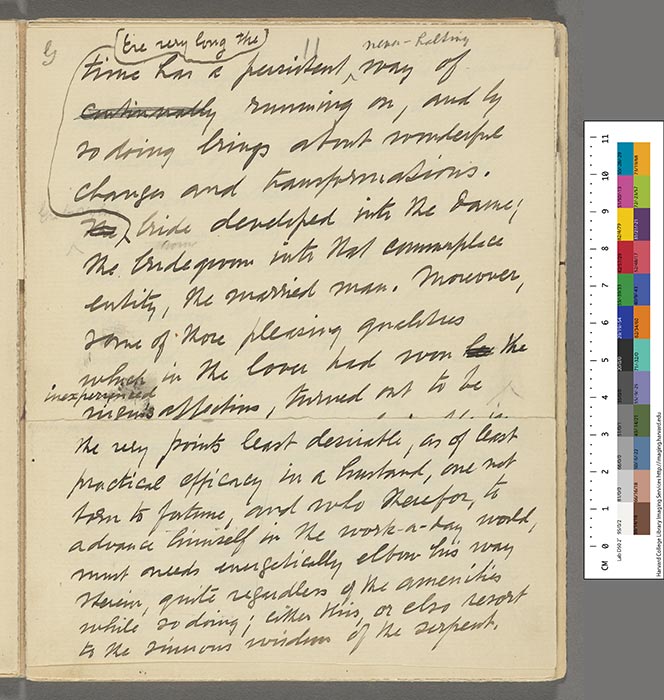 [ere very long the]
never-halting
time has a persistent, way of
continually running on, and by
so doing brings about wonderful
changes and transformations.
The bride developed into the dame;
the bridegroom into that commonplace
entity, the married man. Moreover,
some of those pleasing qualities
which in the lover had won the
inexperienced
affections, turned out to be
the very points least desirable, as of least
practical efficacy in a husband, one not
born to fortune, and who therefor, to
advance himself in the work-a-day world,
must needs energetically elbow his way
therein, quite regardless of the amenities
while so doing; either this, or else resort
to the sinuous wisdom of the serpent.
CM 0 1 2 3 4 5 6 7 8 9 10 11
Harvard College Library Imaging Services http://imaging.harvard.edu